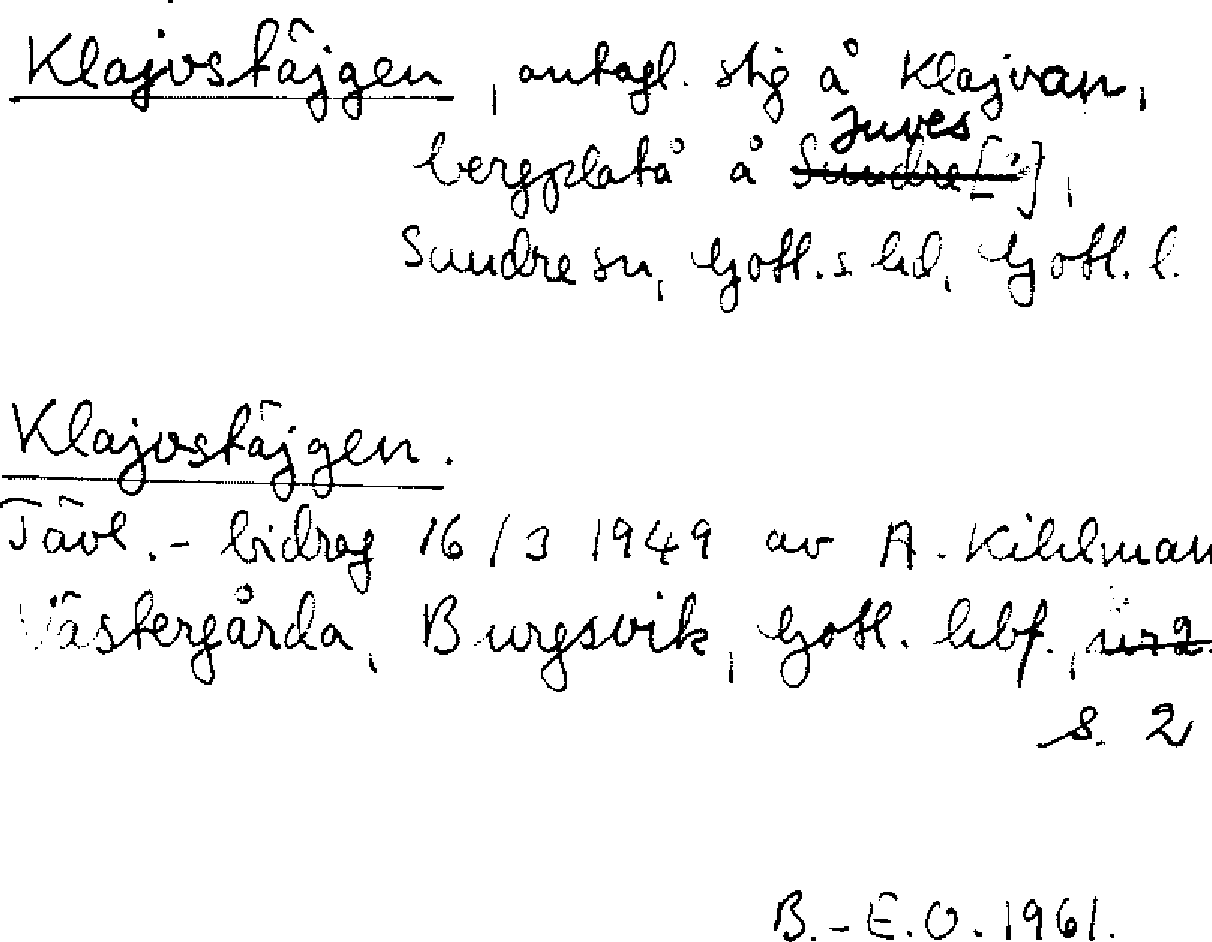 Klajvstäjgen, antagl. stig å Klajvan,
Juves
bergplatå å Sundre[?],
Sundre sn, Gotl. s hd, Gotl. l.
Klajvstäjgen.
Tävl.-bidrag 16/3 1949 av A. Kihlman
Västergårda, Burgsvik, Gotl. hbf.,
s. 2
B.-E.O. 1961.